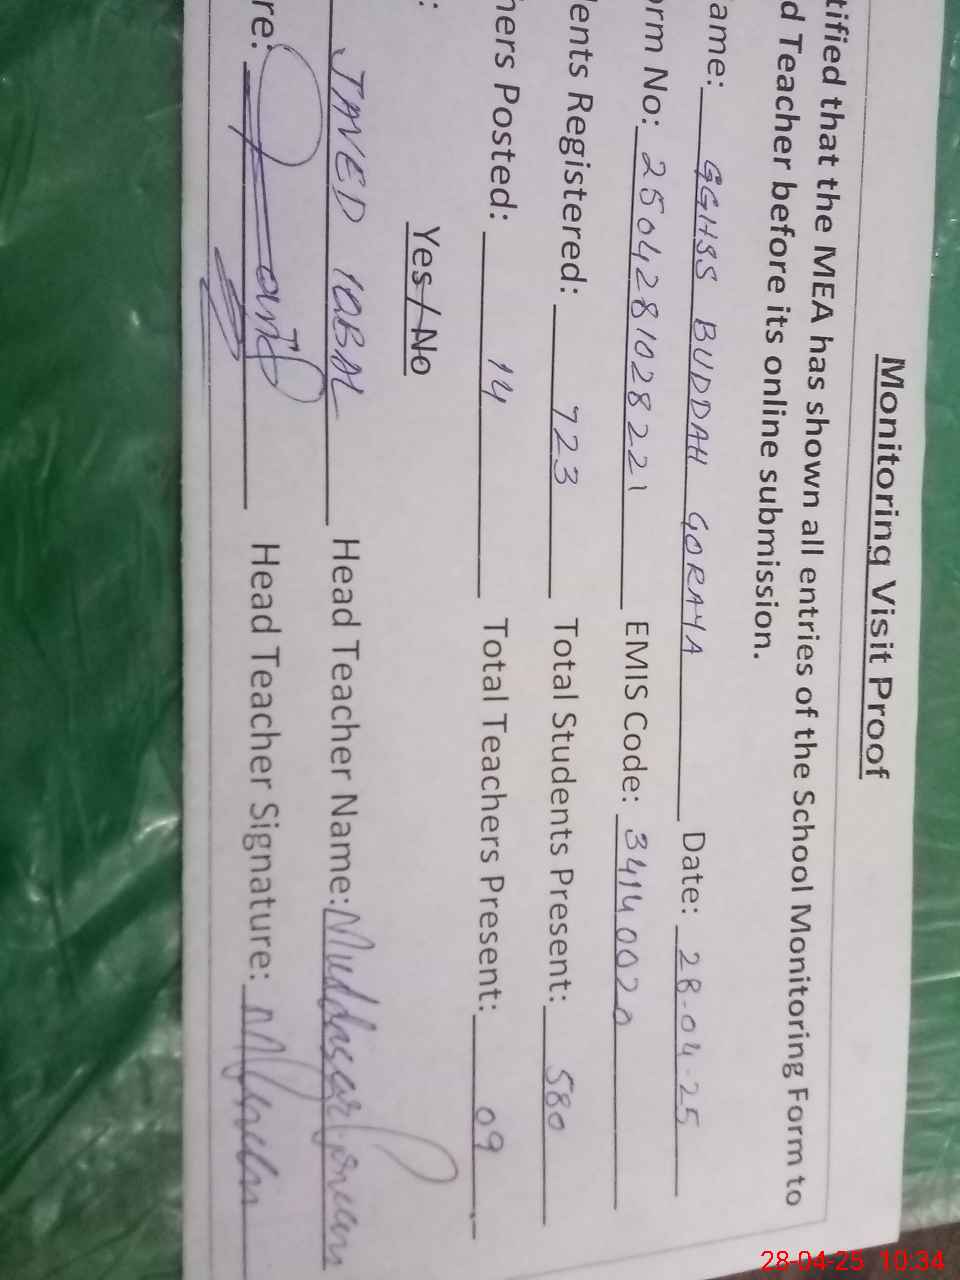 Monitoring Visit Proof
tified that the MEA has shown all entries of the School Monitoring Form to
d Teacher before its online submission.
ame: GGHSS BUDDAH GORAYA Date: 28-04-25
orm No: 2504281028221 EMIS Code: 34140020
dents Registered: 723 Total Students Present: 580
hers Posted: 14 Total Teachers Present: 09
: Yes / No
JAVED IQBAL Head Teacher Name: Muddasar
re: Head Teacher Signature:
28-04-25 10:34